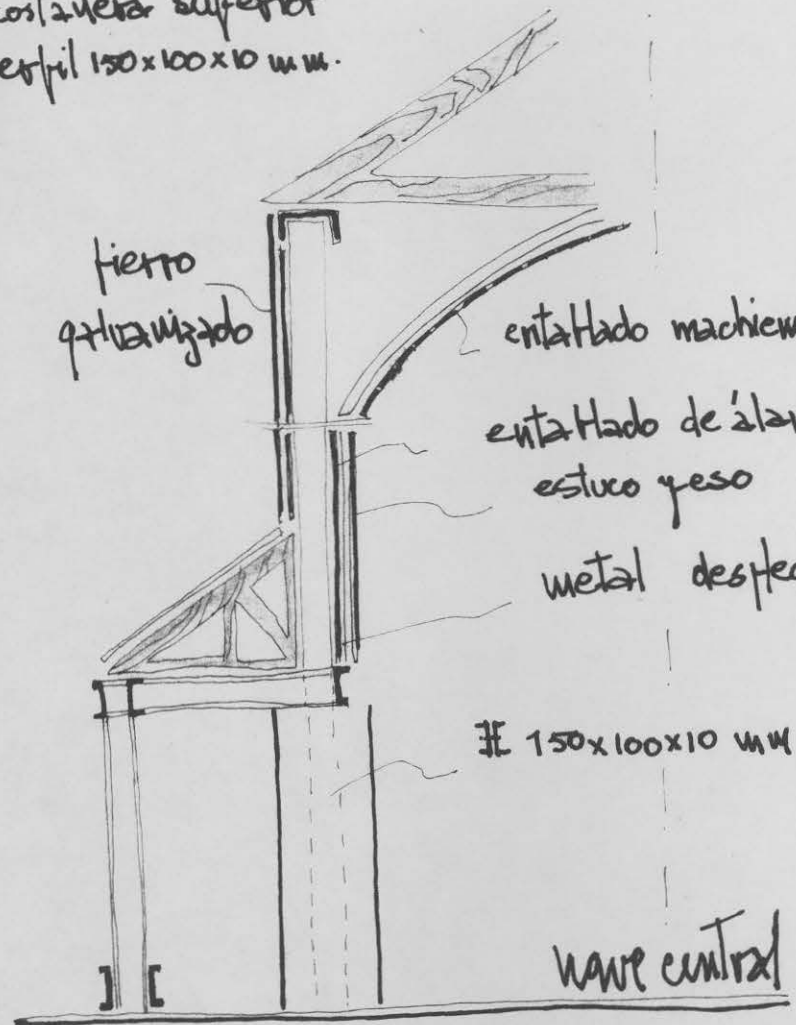 costanera superior
perfil 150x100x10 mm.
fierro
galvanizado
entablado machiem
entablado de álam
estuco yeso
metal desple
150x100x10 mm
nave central